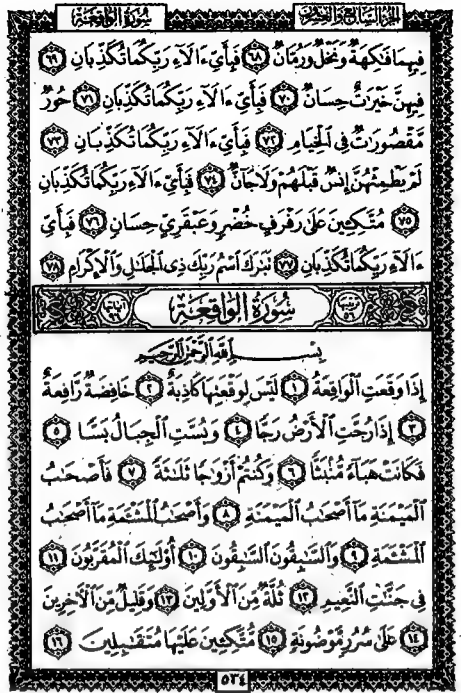 سُورَةُ الوَاقِعَةِ
الجزء السابع والعشرون
فِيهِمَا فَٰكِهَةٌ وَنَخْلٌ وَرُمَّانٌ ٦٨ فَبِأَيِّ ءَالَآءِ رَبِّكُمَا تُكَذِّبَانِ ٦٩
فِيهِنَّ خَيْرَٰتٌ حِسَانٌ ٧٠ فَبِأَيِّ ءَالَآءِ رَبِّكُمَا تُكَذِّبَانِ ٧١ حُورٌ
مَّقْصُورَٰتٌ فِي الْخِيَامِ ٧٢ فَبِأَيِّ ءَالَآءِ رَبِّكُمَا تُكَذِّبَانِ ٧٣
لَمْ يَطْمِثْهُنَّ إِنسٌ قَبْلَهُمْ وَلَا جَانٌّ ٧٤ فَبِأَيِّ ءَالَآءِ رَبِّكُمَا تُكَذِّبَانِ
٧٥ مُتَّكِـِٔينَ عَلَىٰ رَفْرَفٍ خُضْرٍ وَعَبْقَرِيٍّ حِسَانٍ ٧٦ فَبِأَيِّ
ءَالَآءِ رَبِّكُمَا تُكَذِّبَانِ ٧٧ تَبَٰرَكَ اسْمُ رَبِّكَ ذِي الْجَلَٰلِ وَالْإِكْرَامِ ٧٨
سُورَةُ الوَاقِعَةِ
بِسْمِ اللَّهِ الرَّحْمَٰنِ الرَّحِيمِ
إِذَا وَقَعَتِ الْوَاقِعَةُ ١ لَيْسَ لِوَقْعَتِهَا كَاذِبَةٌ ٢ خَافِضَةٌ رَّافِعَةٌ
٣ إِذَا رُجَّتِ الْأَرْضُ رَجًّا ٤ وَبُسَّتِ الْجِبَالُ بَسًّا ٥
فَكَانَتْ هَبَآءً مُّنۢبَثًّا ٦ وَكُنتُمْ أَزْوَٰجًا ثَلَٰثَةً ٧ فَأَصْحَٰبُ
الْمَيْمَنَةِ مَآ أَصْحَٰبُ الْمَيْمَنَةِ ٨ وَأَصْحَٰبُ الْمَشْـَٔمَةِ مَآ أَصْحَٰبُ
الْمَشْـَٔمَةِ ٩ وَالسَّٰبِقُونَ السَّٰبِقُونَ ١٠ أُو۟لَٰٓئِكَ الْمُقَرَّبُونَ ١١
فِي جَنَّٰتِ النَّعِيمِ ١٢ ثُلَّةٌ مِّنَ الْأَوَّلِينَ ١٣ وَقَلِيلٌ مِّنَ الْآخِرِينَ
١٤ عَلَىٰ سُرُرٍ مَّوْضُونَةٍ ١٥ مُّتَّكِـِٔينَ عَلَيْهَا مُتَقَٰبِلِينَ ١٦
٥٣٤